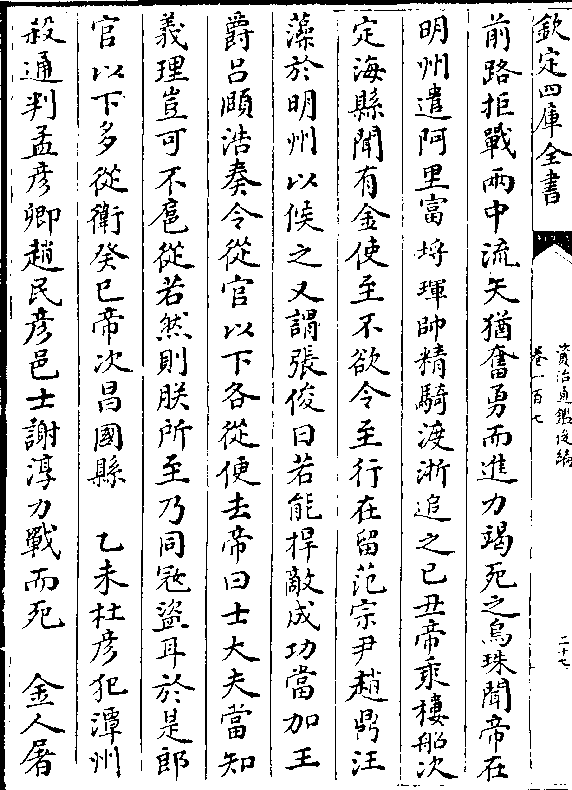 欽定四庫全書
資治通鑑後編
卷一百七
二十七
前路拒戰両中流矢猶奮勇而進力竭死之烏珠聞帝在
明州遣阿里富埒琿帥精騎渡浙追之己丑帝乘樓船次
定海縣聞有金使至不欲令至行在留范宗尹趙鼎汪
藻於明州以候之又謂張俊曰若能捍敵成功當加王
爵吕頤浩奏令從官以下各從便去帝曰士大夫當知
義理豈可不扈從若然則朕所至乃同冦盜耳於是郎
官以下多從衛癸巳帝次昌國縣　乙未杜彦犯潭州
殺通判孟彦卿趙民彦邑士謝淳力戰而死　金人屠